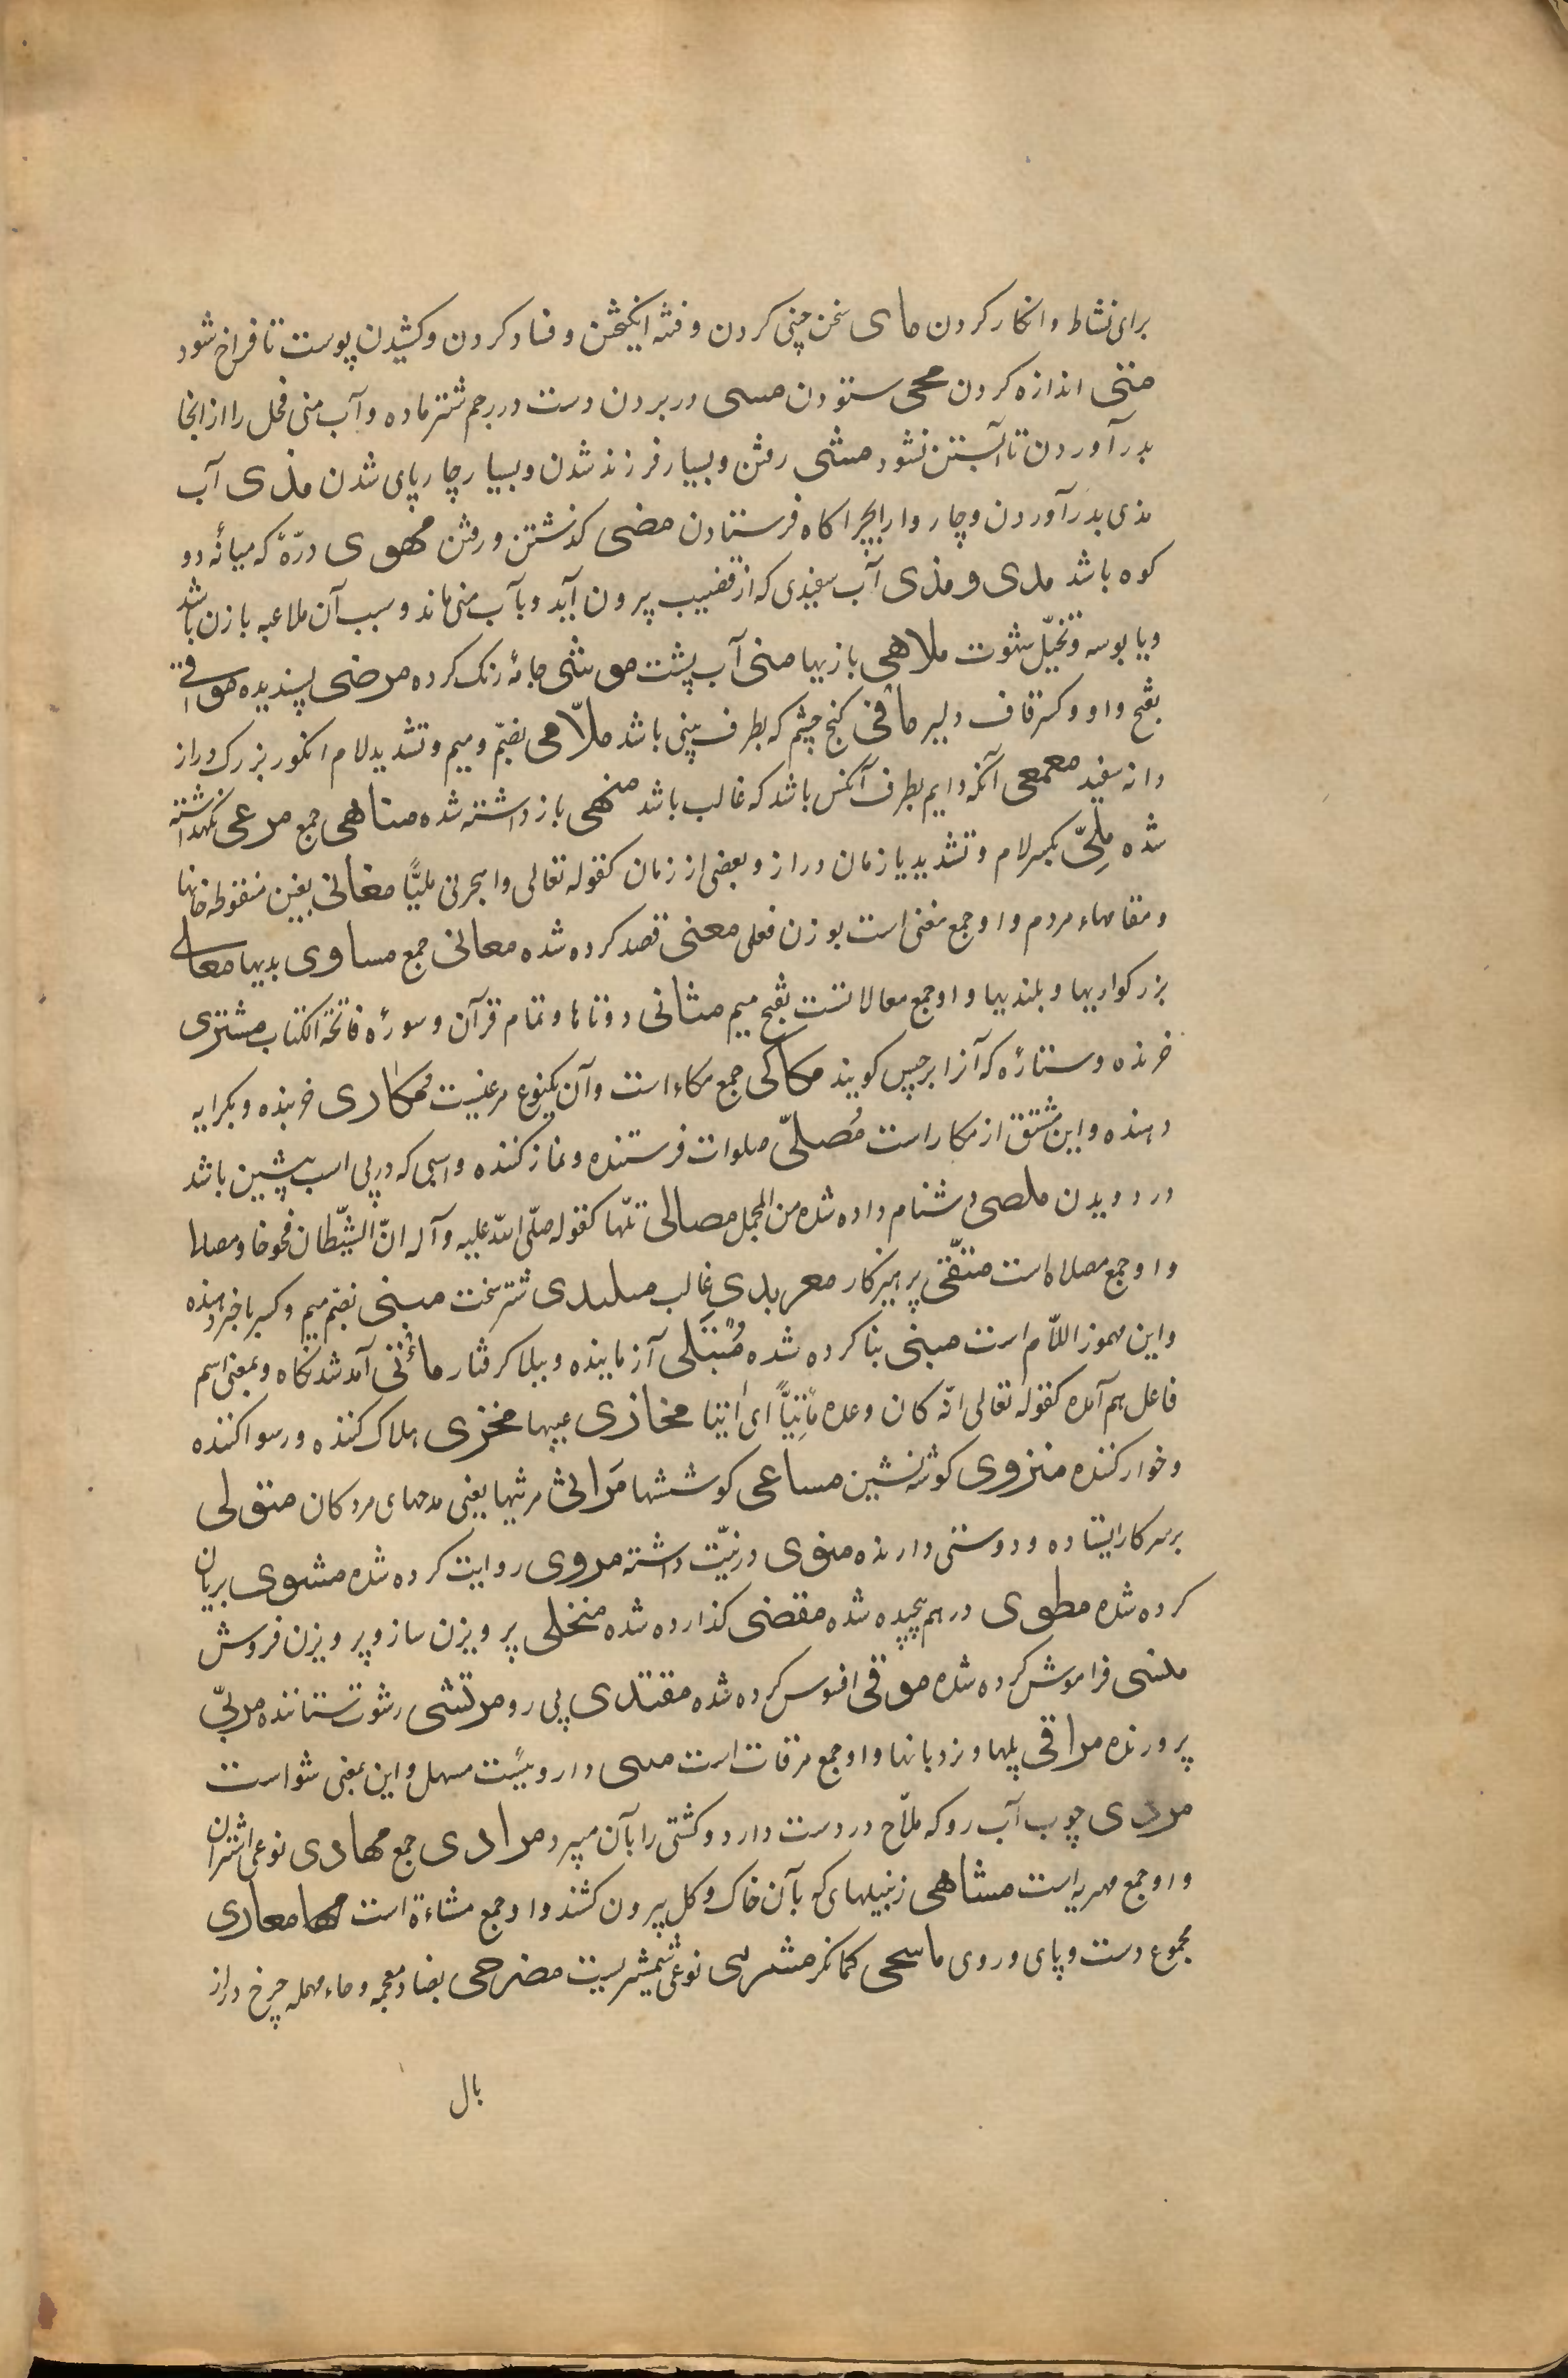 برای نشاط و انکار کردن مای سخن چینی کردن و فتنه انکیختن و فساد کردن و کشیدن پوست تا فراخ شود
منی اندازه کردن محی ستودن مسی در بردن دست در رحم شتر ماده و آب منی فحل را از انجا
بدر آوردن تا آبستن نشود مشی رفتن و بسیار فرزند شدن و بسیار چارپای شدن مذی آب
مذی بدر آوردن و چاروا را بچراکاه فرستادن مضی کذشتن و رفتن مهوی درّهٔ که میانهٔ دو
کوه باشد مدی و مذی آب سفیدی که از قضیب بیرون آید و بآب منی ماند و سبب آن ملاعبه با زن باشد
و یا بوسه و تخیّل شهوت ملاهی بازیها منی آب پشت موشی جامهٔ رنک کرده مرضی پسندیده مواقی
بفتح واو و کسر قاف دلیر ماقی کنج چشم که بطرف بینی باشد ملّاحی بضمّ و میم و تشدید لام انکور بزرک دراز
دانه سفید معمعی آنکه دایم بطرف آنکس باشد که غالب باشد منهی باز داشته شده مناهی جمع مرعی نکهداشته
شده ملیّ بکسر لام و تشدید یا زمان دراز و بعضی از زمان کقوله تعالی واهجرنی ملیًّا مغانی بغین منقوطه خانها
و مقامهاء مردم و او جمع مغنی است بوزن فعلی معنی قصد کرده شده معانی جمع مساوی بدیها معالی
بزرکواریها و بلندیها و او جمع معالاتست بفتح میم مثانی دوتاها و تمام قرآن و سورهٔ فاتحة الکتاب مشتری
خرنده و ستارهٔ که آنرا برجیس کویند مکاکی جمع مکاء است و آن یکنوع مرغیست مکاری خربنده و بکرایه
دهنده و این مشتق از مکار است مُصلّی صلوات فرستنده و نماز کننده و اسبی که در پی اسب پیشین باشد
در دویدن ملصی دشنام داده شده من المجمل مصالی تلّها کقوله صلّی اللّه علیه و آله انّ الشیّطان فخوخا و مصالیا
و او جمع مصلاه است متّقی پرهیزکار معرندی غالب مبلندی شتر سخت مبنی بضم میم و کسر با خبر دهنده
و این مهموز اللّام است مبنی بنا کرده شده مُبتَلی آزماینده و ببلا کرفتار مأتی آمد شد نکاه و بمعنی اسم
فاعل هم آمده کقوله تعالی انّه کان وعده مَأتِیًّا ای آتیا مخازی عیبها مخزی هلاک کننده و رسوا کننده
و خوار کننده منزوی کوشه نشین مساعی کوششها مَراثی مرثیها یعنی مدحهای مردکان متولی
برسر کار ایستاده و دوستی دارنده منوی در نیّت داشته مروی روایت کرده شده مشوی بریان
کرده شده مطوی درهم پیچیده شده مقضی کذارده شده منخلی پرویزن ساز و پرویزن فروش
منسی فراموش کرده شده موقی افسوس کرده شده مقتدی پی رو مرتشی رشوت ستاننده مربّی
پرورنده مراقی پلها و نردبانها و او جمع مرقات است مسی داروییست مسهل و این بمعنی شو است
مردی چوب آب رو که ملّاح در دست دارد و کشتی را بآن میبرد مرادی جمع مهادی نوعی اشتران
و او جمع مهریه است مشاهی زنبیلهای که بآن خاک و کل بیرون کشند و او جمع مشاءة است معاری
مجموع دست و پای و روی ماسحی کمانکر مشربی نوعی شمشیریست مضرحی بضاد معجمه و حاء مهمله چرخ دراز
بال